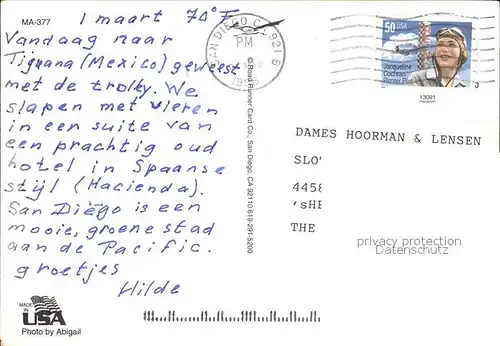 MA-377
1 maart 70°F
Vandaag naar
Tiguana (Mexico) geweest
met de trolly. We
slapen met vieren
in een suite van
een prachtig oud
hotel in Spaanse
stijl (Hacienda).
San Diëgo is een
mooie, groene stad
aan de Pacific.
groetjes
Hilde
MADE IN
USA
Photo by Abigail
© Road Runner Card Co., San Diego, CA 92110 619-291-5200
SAN DIEGO CA 921 B
PM
50 USA
Jacqueline
Cochran
Pioneer Pilot
13091
DAMES HOORMAN & LENSEN
SLO
4458
'sHE
THE
privacy protection
Datenschutz